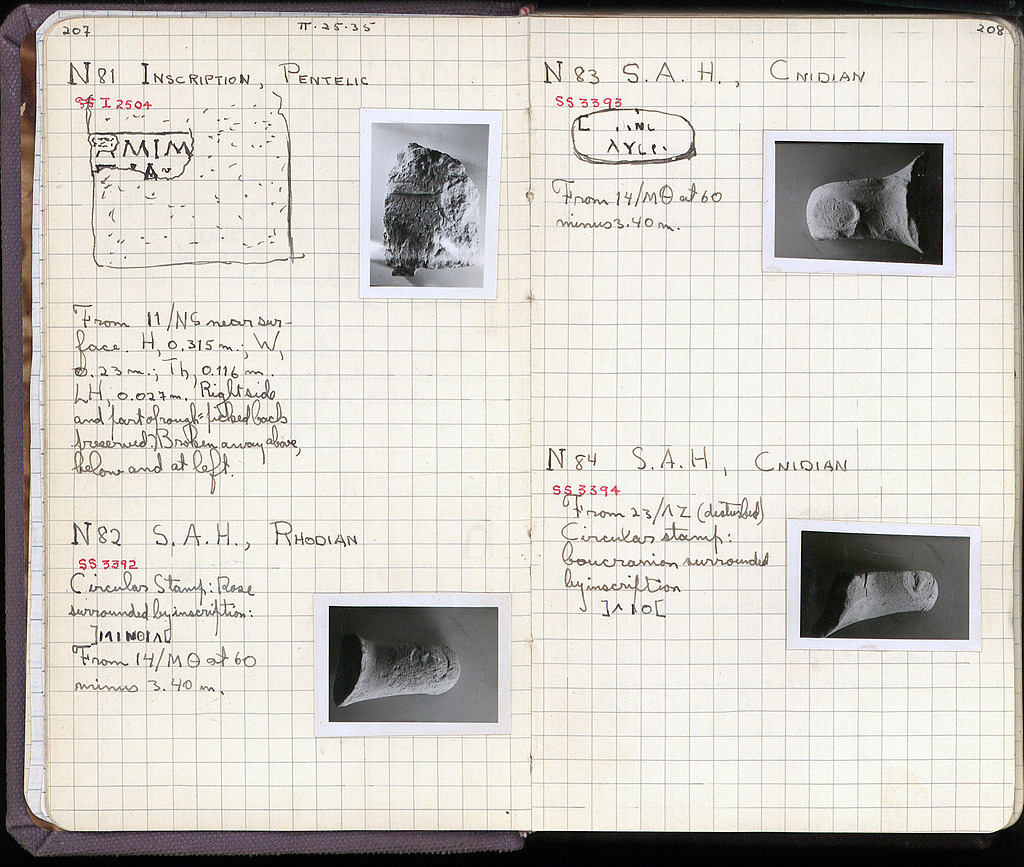 207
II·25·35
N 81 INSCRIPTION, PENTELIC
SS I 2504
ΜΙΜ
Λ
From 11/ΝS near sur-
face. H, 0.315 m.; W,
0.23 m.; Th, 0.116 m.
LH, 0.027 m. Right side
and part of rough-picked back
preserved. Broken away above,
below and at left.
N 82 S.A.H., RHODIAN
SS 3392
Circular Stamp: Rose
surrounded by inscription:
From 14/ΜΘ at 60
minus 3.40 m.
208
N 83 S.A.H., CNIDIAN
SS 3393
From 14/ΜΘ at 60
minus 3.40 m.
N 84 S.A.H, CNIDIAN
SS 3394
From 23/ΛΖ (disturbed)
Circular stamp:
boucranion surrounded
by inscription
]ΛΙΟ[